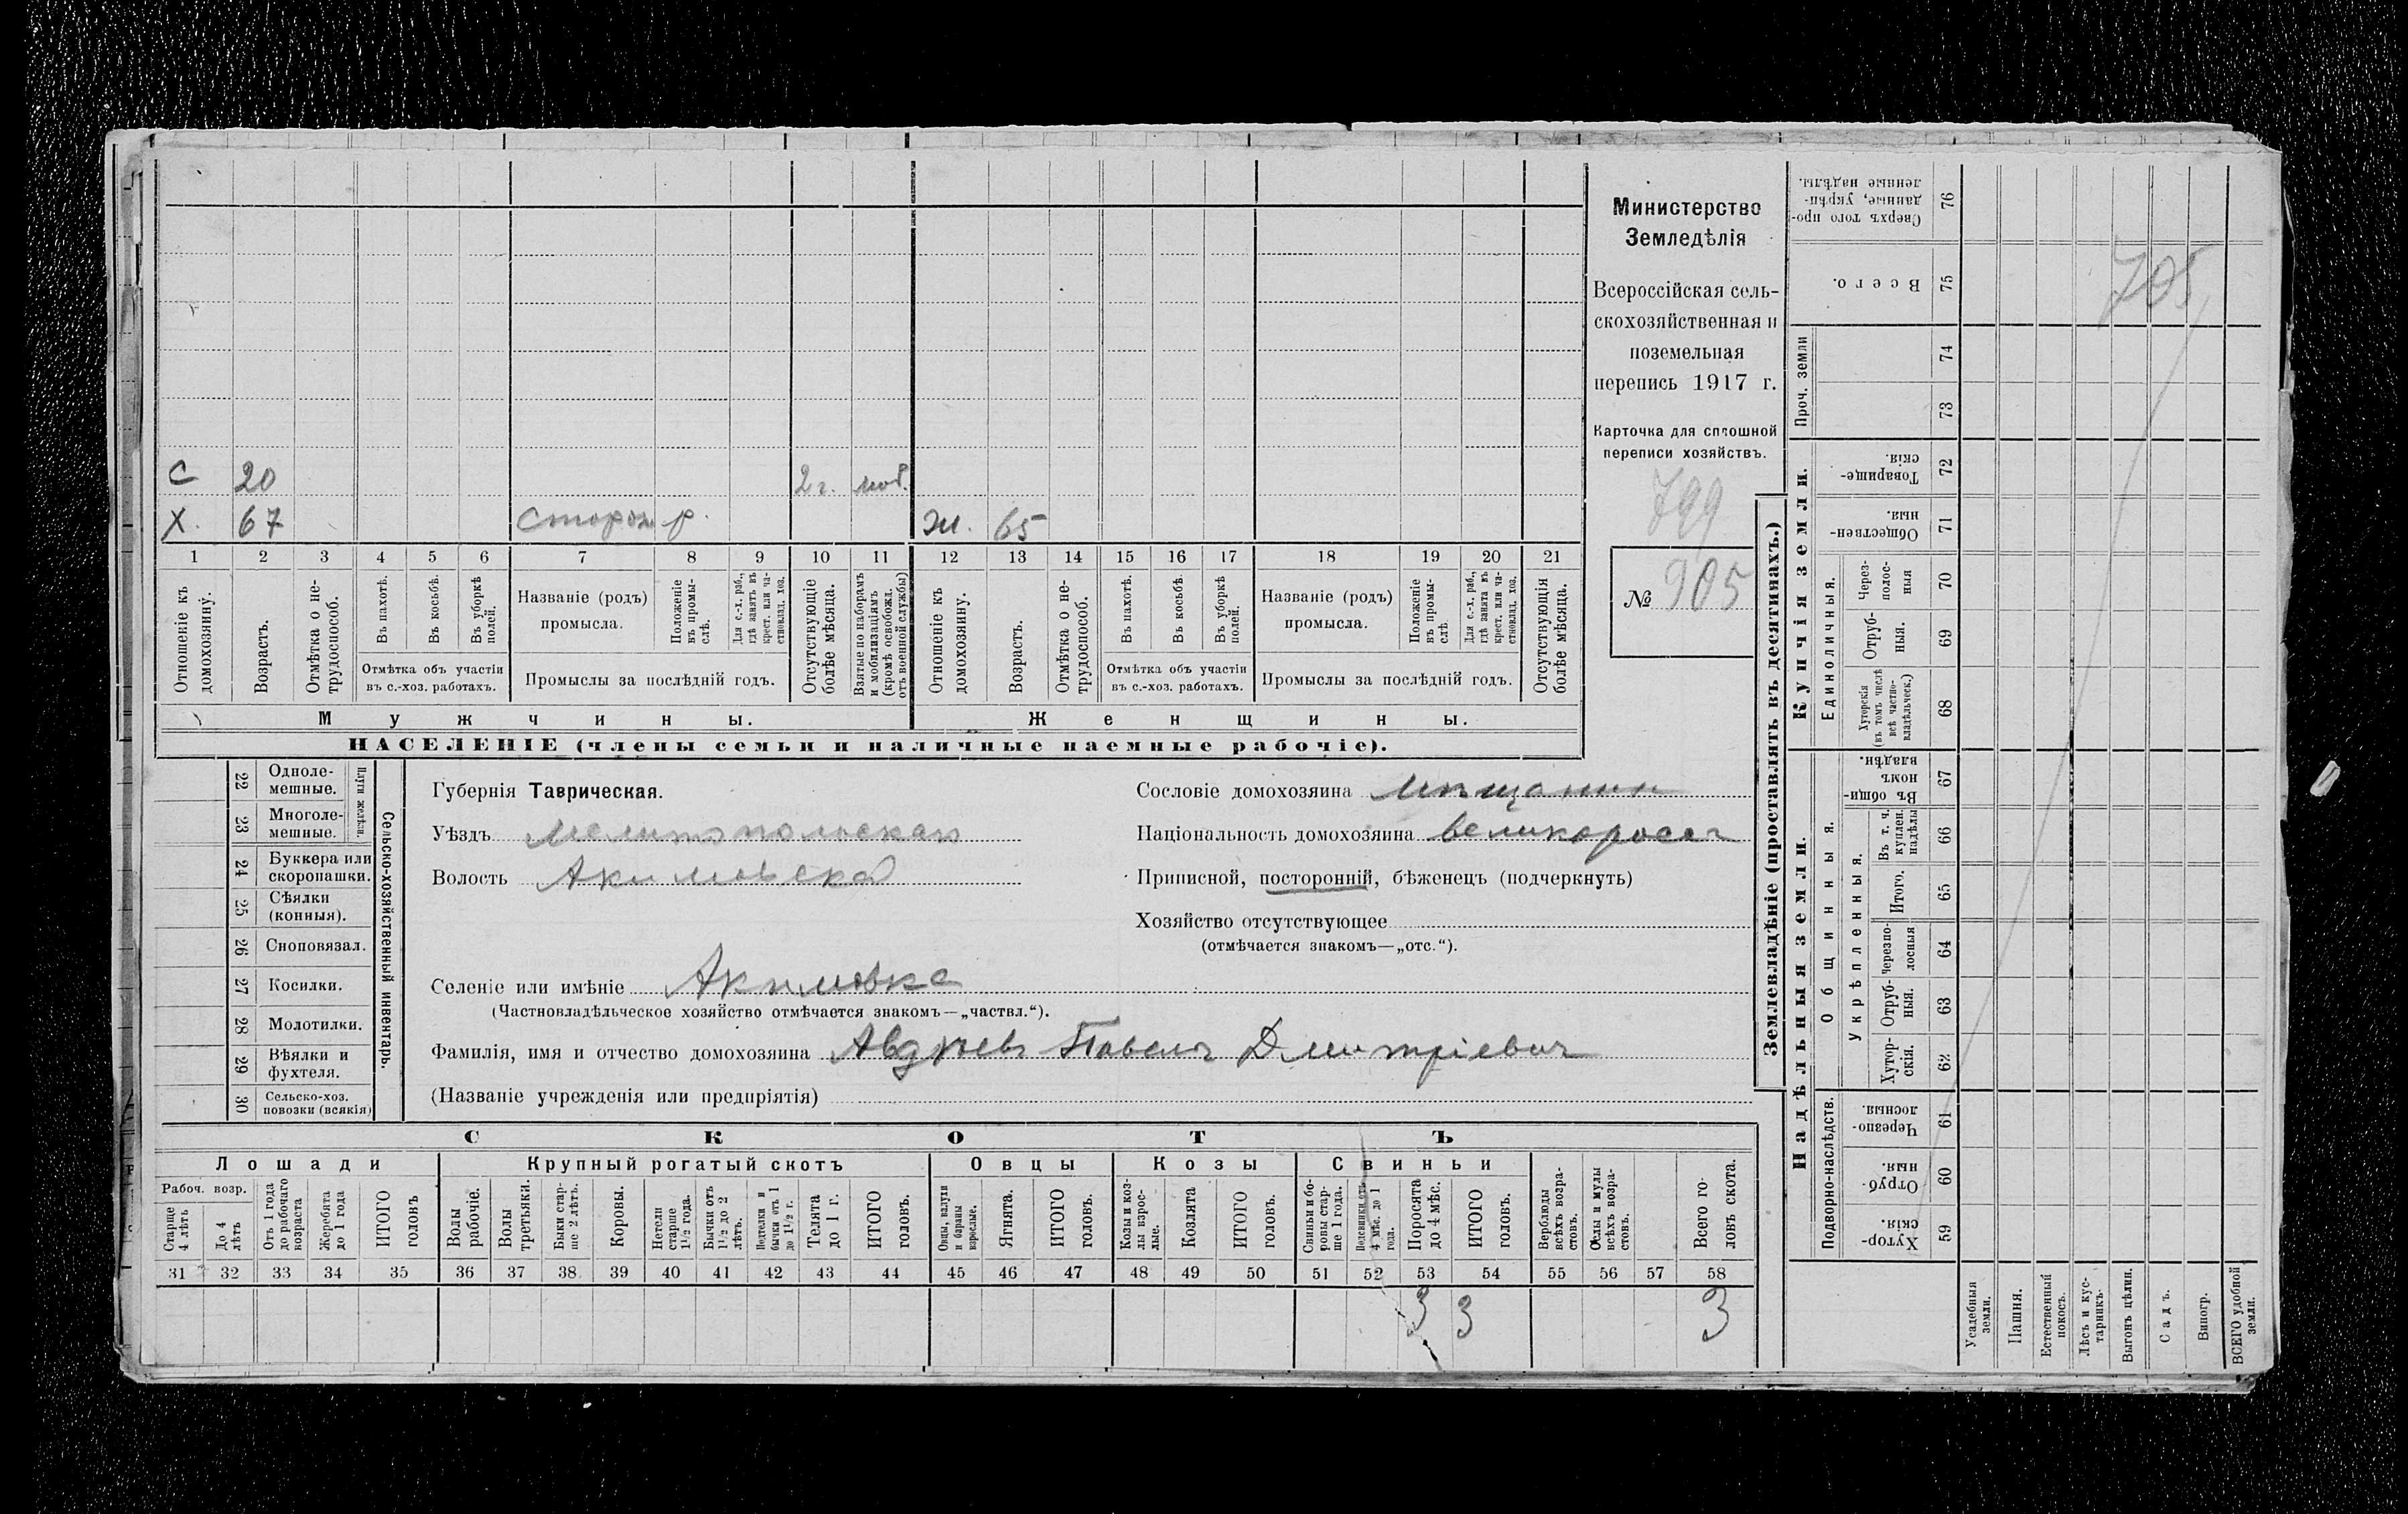 С 20 2 г. моб.
Х. 67 сторож р. ж. 65
1 2 3 4 5 6 7 8 9 10 11 12 13 14 15 16 17 18 19 20 21
Отношеніе къ домохозяину.
Возрастъ.
Отмѣтка о не-
трудоспособ.
Въ пахотѣ.
Въ косьбѣ.
Въ уборкѣ
полей.
Отмѣтка объ участіи
въ с.-хоз. работахъ.
Названіе (родъ)
промысла.
Положеніе
въ промы-
слѣ.
Для с.-х. раб.,
гдѣ занятъ въ
крест. или ча-
стновлад. хоз.
Промыслы за послѣдній годъ.
Отсутствующіе
болѣе мѣсяца.
Взятые по наборамъ
и мобилизаціямъ
(кромѣ освобожд.
отъ военной службы)
Отношеніе къ
домохозяину.
Возрастъ.
Отмѣтка о не-
трудоспособ.
Въ пахотѣ.
Въ косьбѣ.
Въ уборкѣ
полей.
Отмѣтка объ участіи
въ с.-хоз. работахъ.
Названіе (родъ)
промысла.
Положеніе
въ промы-
слѣ.
Для с.-х. раб.,
гдѣ занята въ
крест. или ча-
стновлад. хоз.
Промыслы за послѣдній годъ.
Отсутствующія
болѣе мѣсяца.
Мужчины.
Женщины.
НАСЕЛЕНІЕ (члены семьи и наличные наемные рабочіе).
Министерство
Земледѣлія
Всероссійская сель-
скохозяйственная и
поземельная
перепись 1917 г.
Карточка для сплошной
переписи хозяйствъ.
799
№ 905
22 Одноле-
мешные.
23 Многоле-
мешные.
Плуги желѣзн.
24 Буккера или
скоропашки.
25 Сѣялки
(конныя).
26 Сноповязал.
27 Косилки.
28 Молотилки.
29 Вѣялки и
фухтеля.
30 Сельско-хоз.
повозки (всякія)
Сельско-хозяйственный инвентарь.
Губернія Таврическая.
Уѣздъ Мелитопольская
Волость Акимовска
Сословіе домохозяина мѣщанин
Національность домохозяина великоросъ
Приписной, посторонній, бѣженецъ (подчеркнуть)
Хозяйство отсутствующее
(отмѣчается знакомъ—„отс.“).
Селеніе или имѣніе Акимовка
(Частновладѣльческое хозяйство отмѣчается знакомъ—„частвл.“).
Фамилія, имя и отчество домохозяина Авдѣевъ Павелъ Дмитріевич
(Названіе учрежденія или предпріятія)
СКОТЪ
Лошади
Рабоч. возр.
Старше
4 лѣтъ
До 4
лѣтъ
Отъ 1 года
до рабочаго
возраста
Жеребята
до 1 года
ИТОГО
головъ
Крупный рогатый скотъ
Волы
рабочіе.
Волы
третьяки.
Быки стар-
ше 2 лѣтъ.
Коровы.
Нетели
старше
1½ года.
Бычки отъ
1½ до 2
лѣтъ.
Подтелки и
бычки отъ 1
до 1½ г.
Телята
до 1 г.
ИТОГО
головъ.
Овцы
Овцы, валухи
и бараны
взрослые.
Ягнята.
ИТОГО
головъ.
Козы
Козы и коз-
лы взрос-
лые.
Козлята
ИТОГО
головъ.
Свиньи
Свиньи и бо-
ровы стар-
ше 1 года.
Подсвинки отъ
4 мѣс. до 1
года.
Поросята
до 4 мѣс.
ИТОГО
головъ.
Верблюды
всѣхъ возра-
стовъ.
Ослы и мулы
всѣхъ возра-
стовъ.
Всего го-
ловъ скота.
31 32 33 34 35 36 37 38 39 40 41 42 43 44 45 46 47 48 49 50 51 52 53 54 55 56 57 58
3 3 3
Землевладѣніе (проставлять въ десятинахъ.)
705
Сверхъ того про-
данные, укрѣп-
ленные надѣлы.
76
Всего.
75
Проч. земли
74
73
Купчія земли.
Товарище-
скія.
72
Обществен-
ныя.
71
Единоличныя.
Через-
полос-
ныя
70
Отруб-
ныя.
69
Хуторскія
(въ томъ числѣ
всѣ частно-
владѣльческ.)
68
Надѣльныя земли.
Общинныя.
Въ общи-
номъ
владѣн.
67
Укрѣпленныя.
Въ т. ч.
куплен.
надѣлы
66
Итого.
65
Черезпо-
лосныя
64
Отруб-
ныя.
63
Хутор-
скія.
62
Подворно-наслѣдств.
Черезпо-
лосныя.
61
Отруб-
ныя.
60
Хутор-
скія.
59
Усадебныя
земли.
Пашня.
Естественный
покосъ.
Лѣсъ и кус-
тарникъ.
Выгонъ цѣлин.
Садъ.
Виногр.
ВСЕГО удобной
земли.